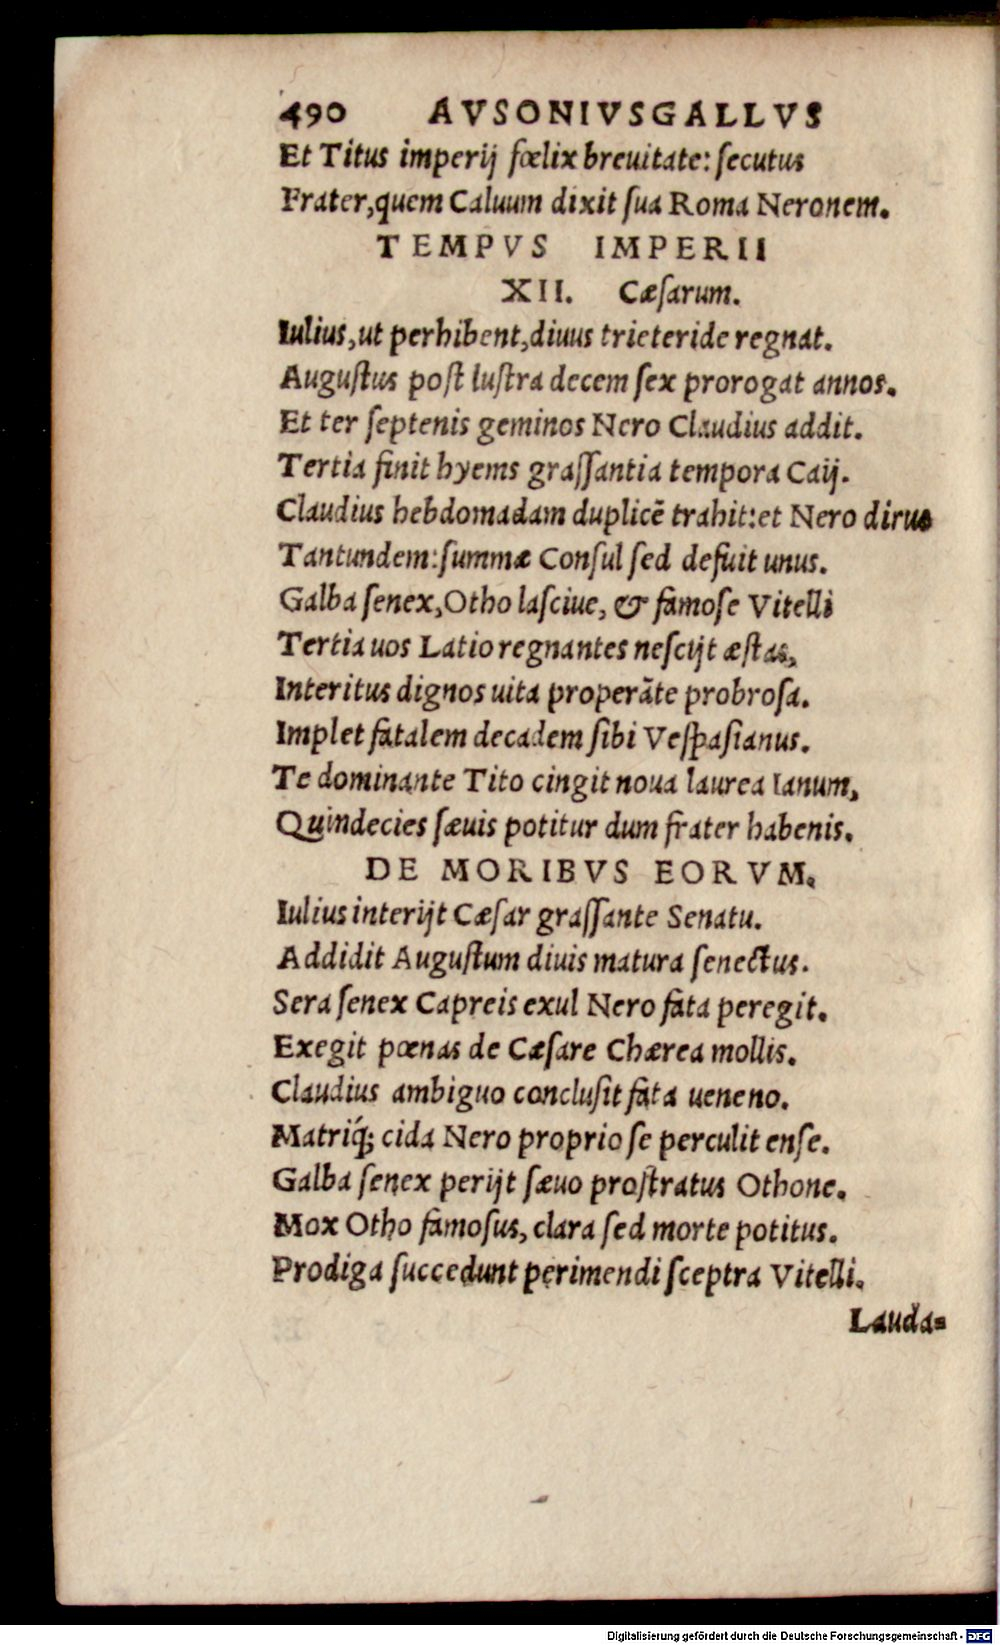 490 AVSONIVSGALLVS
Et Titus imperij fœlix breuitate: ſecutus
Frater, quem Caluum dixit ſua Roma Neronem.
TEMPVS IMPERII
XII. Cæſarum.
Iulius, ut perhibent, diuus trieteride regnat.
Auguſtus poſt luſtra decem ſex prorogat annos.
Et ter ſeptenis geminos Nero Claudius addit.
Tertia finit hyems graſſantia tempora Caij.
Claudius hebdomadam duplicē trahit: et Nero dirus
Tantundem: ſummæ Conſul ſed defuit unus.
Galba ſenex, Otho laſciue, & famoſe Vitelli
Tertia uos Latio regnantes neſcijt æſtas,
Interitus dignos uita properāte probroſa.
Implet fatalem decadem ſibi Veſpaſianus.
Te dominante Tito cingit noua laurea Ianum,
Quindecies ſæuis potitur dum frater habenis.
DE MORIBVS EORVM.
Iulius interijt Cæſar graſſante Senatu.
Addidit Auguſtum diuis matura ſenectus.
Sera ſenex Capreis exul Nero fata peregit.
Exegit pœnas de Cæſare Chærea mollis.
Claudius ambiguo concluſit fata ueneno.
Matriq́; cida Nero proprio ſe perculit enſe.
Galba ſenex perijt ſæuo proſtratus Othone.
Mox Otho famoſus, clara ſed morte potitus.
Prodiga ſuccedunt perimendi ſceptra Vitelli.
Lauda=
Digitalisierung gefördert durch die Deutsche Forschungsgemeinschaft - DFG